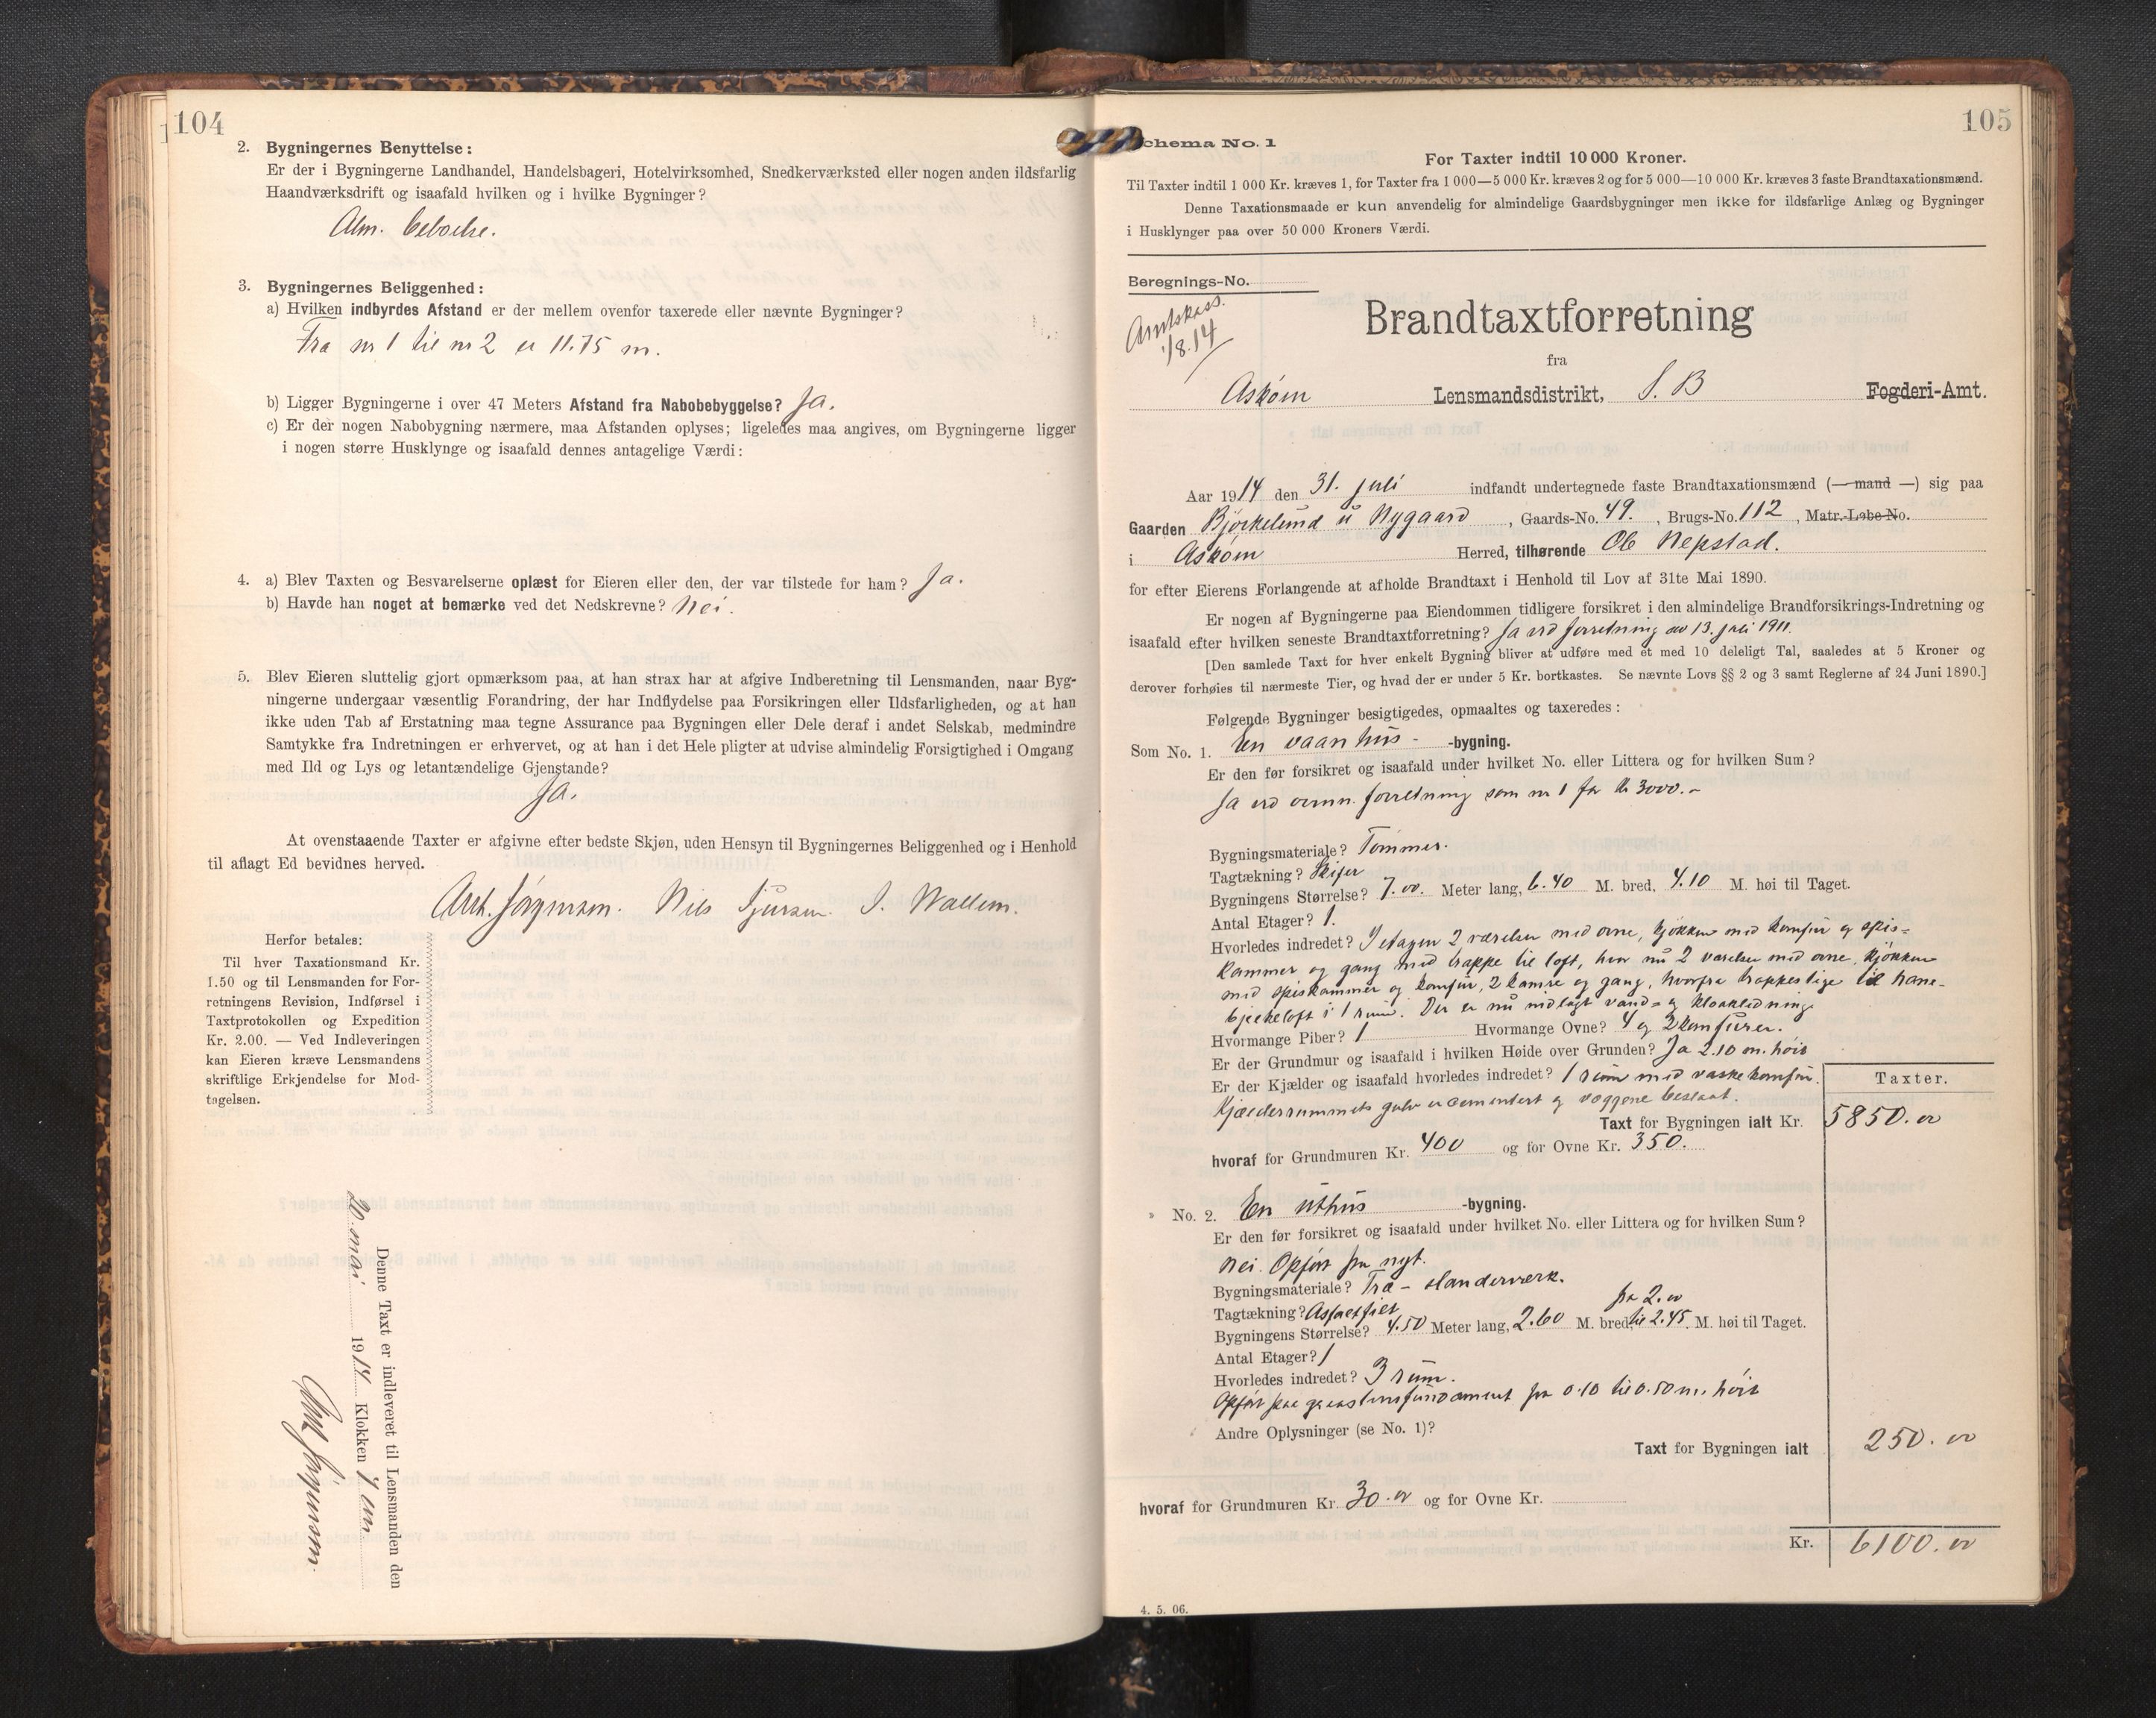 104
2. Bygningernes Benyttelse:
Er der i Bygningerne Landhandel, Handelsbageri, Hotelvirksomhed, Snedkerværksted eller nogen anden ildsfarlig
Haandværksdrift og isaafald hvilken og i hvilke Bygninger?
Alm. beboelse.
3. Bygningernes Beliggenhed:
a) Hvilken indbyrdes Afstand er der mellem ovenfor taxerede eller nævnte Bygninger?
Fra nr 1 til nr 2 er 11.75 m.
b) Ligger Bygningerne i over 47 Meters Afstand fra Nabobebyggelse? Ja.
c) Er der nogen Nabobygning nærmere, maa Afstanden oplyses; ligeledes maa angives, om Bygningerne ligger
i nogen større Husklynge og isaafald dennes antagelige Værdi:
4. a) Blev Taxten og Besvarelserne oplæst for Eieren eller den, der var tilstede for ham? Ja.
b) Havde han noget at bemærke ved det Nedskrevne? Nei.
5. Blev Eieren sluttelig gjort opmærksom paa, at han strax har at afgive Indberetning til Lensmanden, naar Byg-
ningerne undergaar væsentlig Forandring, der har Indflydelse paa Forsikringen eller Ildsfarligheden, og at han
ikke uden Tab af Erstatning maa tegne Assurance paa Bygningen eller Dele deraf i andet Selskab, medmindre
Samtykke fra Indretningen er erhvervet, og at han i det Hele pligter at udvise almindelig Forsigtighed i Omgang
med Ild og Lys og letantændelige Gjenstande?
Ja.
At ovenstaaende Taxter er afgivne efter bedste Skjøn, uden Hensyn til Bygningernes Beliggenhed og i Henhold
til aflagt Ed bevidnes herved.
Ant. Jørgensen. Nils Sjursen. J. Wallem.
Herfor betales:
Til hver Taxationsmand Kr.
1.50 og til Lensmanden for For-
retningens Revision, Indførsel i
Taxtprotokollen og Expedition
Kr. 2.00. — Ved Indleveringen
kan Eieren kræve Lensmandens
skriftlige Erkjendelse for Mod-
tagelsen.
Denne Taxt er indleveret til Lensmanden den
20. mai 1914 Klokken 7 em
Ant Jørgensen.
105
Schema No. 1
For Taxter indtil 10 000 Kroner.
Til Taxter indtil 1 000 Kr. kræves 1, for Taxter fra 1 000—5 000 Kr. kræves 2 og for 5 000—10 000 Kr. kræves 3 faste Brandtaxationsmænd.
Denne Taxationsmaade er kun anvendelig for almindelige Gaardsbygninger men ikke for ildsfarlige Anlæg og Bygninger
i Husklynger paa over 50 000 Kroners Værdi.
Beregnings-No.
Amtskass.
1/8.14
Brandtaxtforretning
fra
Askøen Lensmandsdistrikt, S. B Fogderi-Amt.
Aar 1914 den 31. juli indfandt undertegnede faste Brandtaxationsmænd (— mand —) sig paa
Gaarden Bjørkelund u Nygaard, Gaards-No. 49., Brugs-No. 112, Matr.-Løbe-No.
i Askøen Herred, tilhørende Ole Nepstad.
for efter Eierens Forlangende at afholde Brandtaxt i Henhold til Lov af 31te Mai 1890.
Er nogen af Bygningerne paa Eiendommen tidligere forsikret i den almindelige Brandforsikrings-Indretning og
isaafald efter hvilken seneste Brandtaxtforretning? Ja ved forretning av 13. juli 1911.
[Den samlede Taxt for hver enkelt Bygning bliver at udføre med et med 10 deleligt Tal, saaledes at 5 Kroner og
derover forhøies til nærmeste Tier, og hvad der er under 5 Kr. bortkastes. Se nævnte Lovs §§ 2 og 3 samt Reglerne af 24 Juni 1890.]
Følgende Bygninger besigtigedes, opmaaltes og taxeredes:
Som No. 1. En vaanhus- -bygning.
Er den før forsikret og isaafald under hvilket No. eller Littera og for hvilken Sum?
Ja ved ovnn. forretning som nr 1 for Kr 3000.-
Bygningsmateriale? Tømmer.
Tagtækning? Skifer
Bygningens Størrelse? 7.00. Meter lang, 6.40 M. bred, 4.10 M. høi til Taget.
Antal Etager? 1.
Hvorledes indredet? I etagen 2 værelser med ovne, kjøkken med komfur og spis-
kammer og gang med trappe til loft, hvor nu 2 værelser med ovne, kjøkken
med spiskammer og komfur, 2 kamre og gang, hvorfra trappestige til hane-
bjelkeloft i 1 rum. Der er nu nidlagt vand- og kloakledning
Hvormange Piber? 1 Hvormange Ovne? 4 og 2 komfurer.
Er der Grundmur og isaafald i hvilken Høide over Grunden? Ja 2.10 m. høit
Er der Kjælder og isaafald hvorledes indredet? 1 rum med vaskekomfur.
Kjælderrummets gulv er cementert og væggene beslaat.
Taxter.
Taxt for Bygningen ialt Kr. 5850.00
hvoraf for Grundmuren Kr. 400 og for Ovne Kr. 350.
No. 2. En uthus -bygning.
Er den før forsikret og isaafald under hvilket No. eller Littera og for hvilken Sum?
Nei. Opført fra nyt.
Bygningsmateriale? Træ- standerværk.
Tagtækning? Asfaltfilt
Bygningens Størrelse? 4.50 Meter lang, 2.60 M. bred, fra 2.00 til 2.45 M. høi til Taget.
Antal Etager? 1
Hvorledes indredet? 3 rum.
Opført paa graastensfundament fra 0.10 til 0.50 m. høit
Andre Oplysninger (se No. 1)?
Taxt for Bygningen ialt 250.00
hvoraf for Grundmuren Kr. 30.00 og for Ovne Kr.
Kr. 6100.00
4. 5. 06.